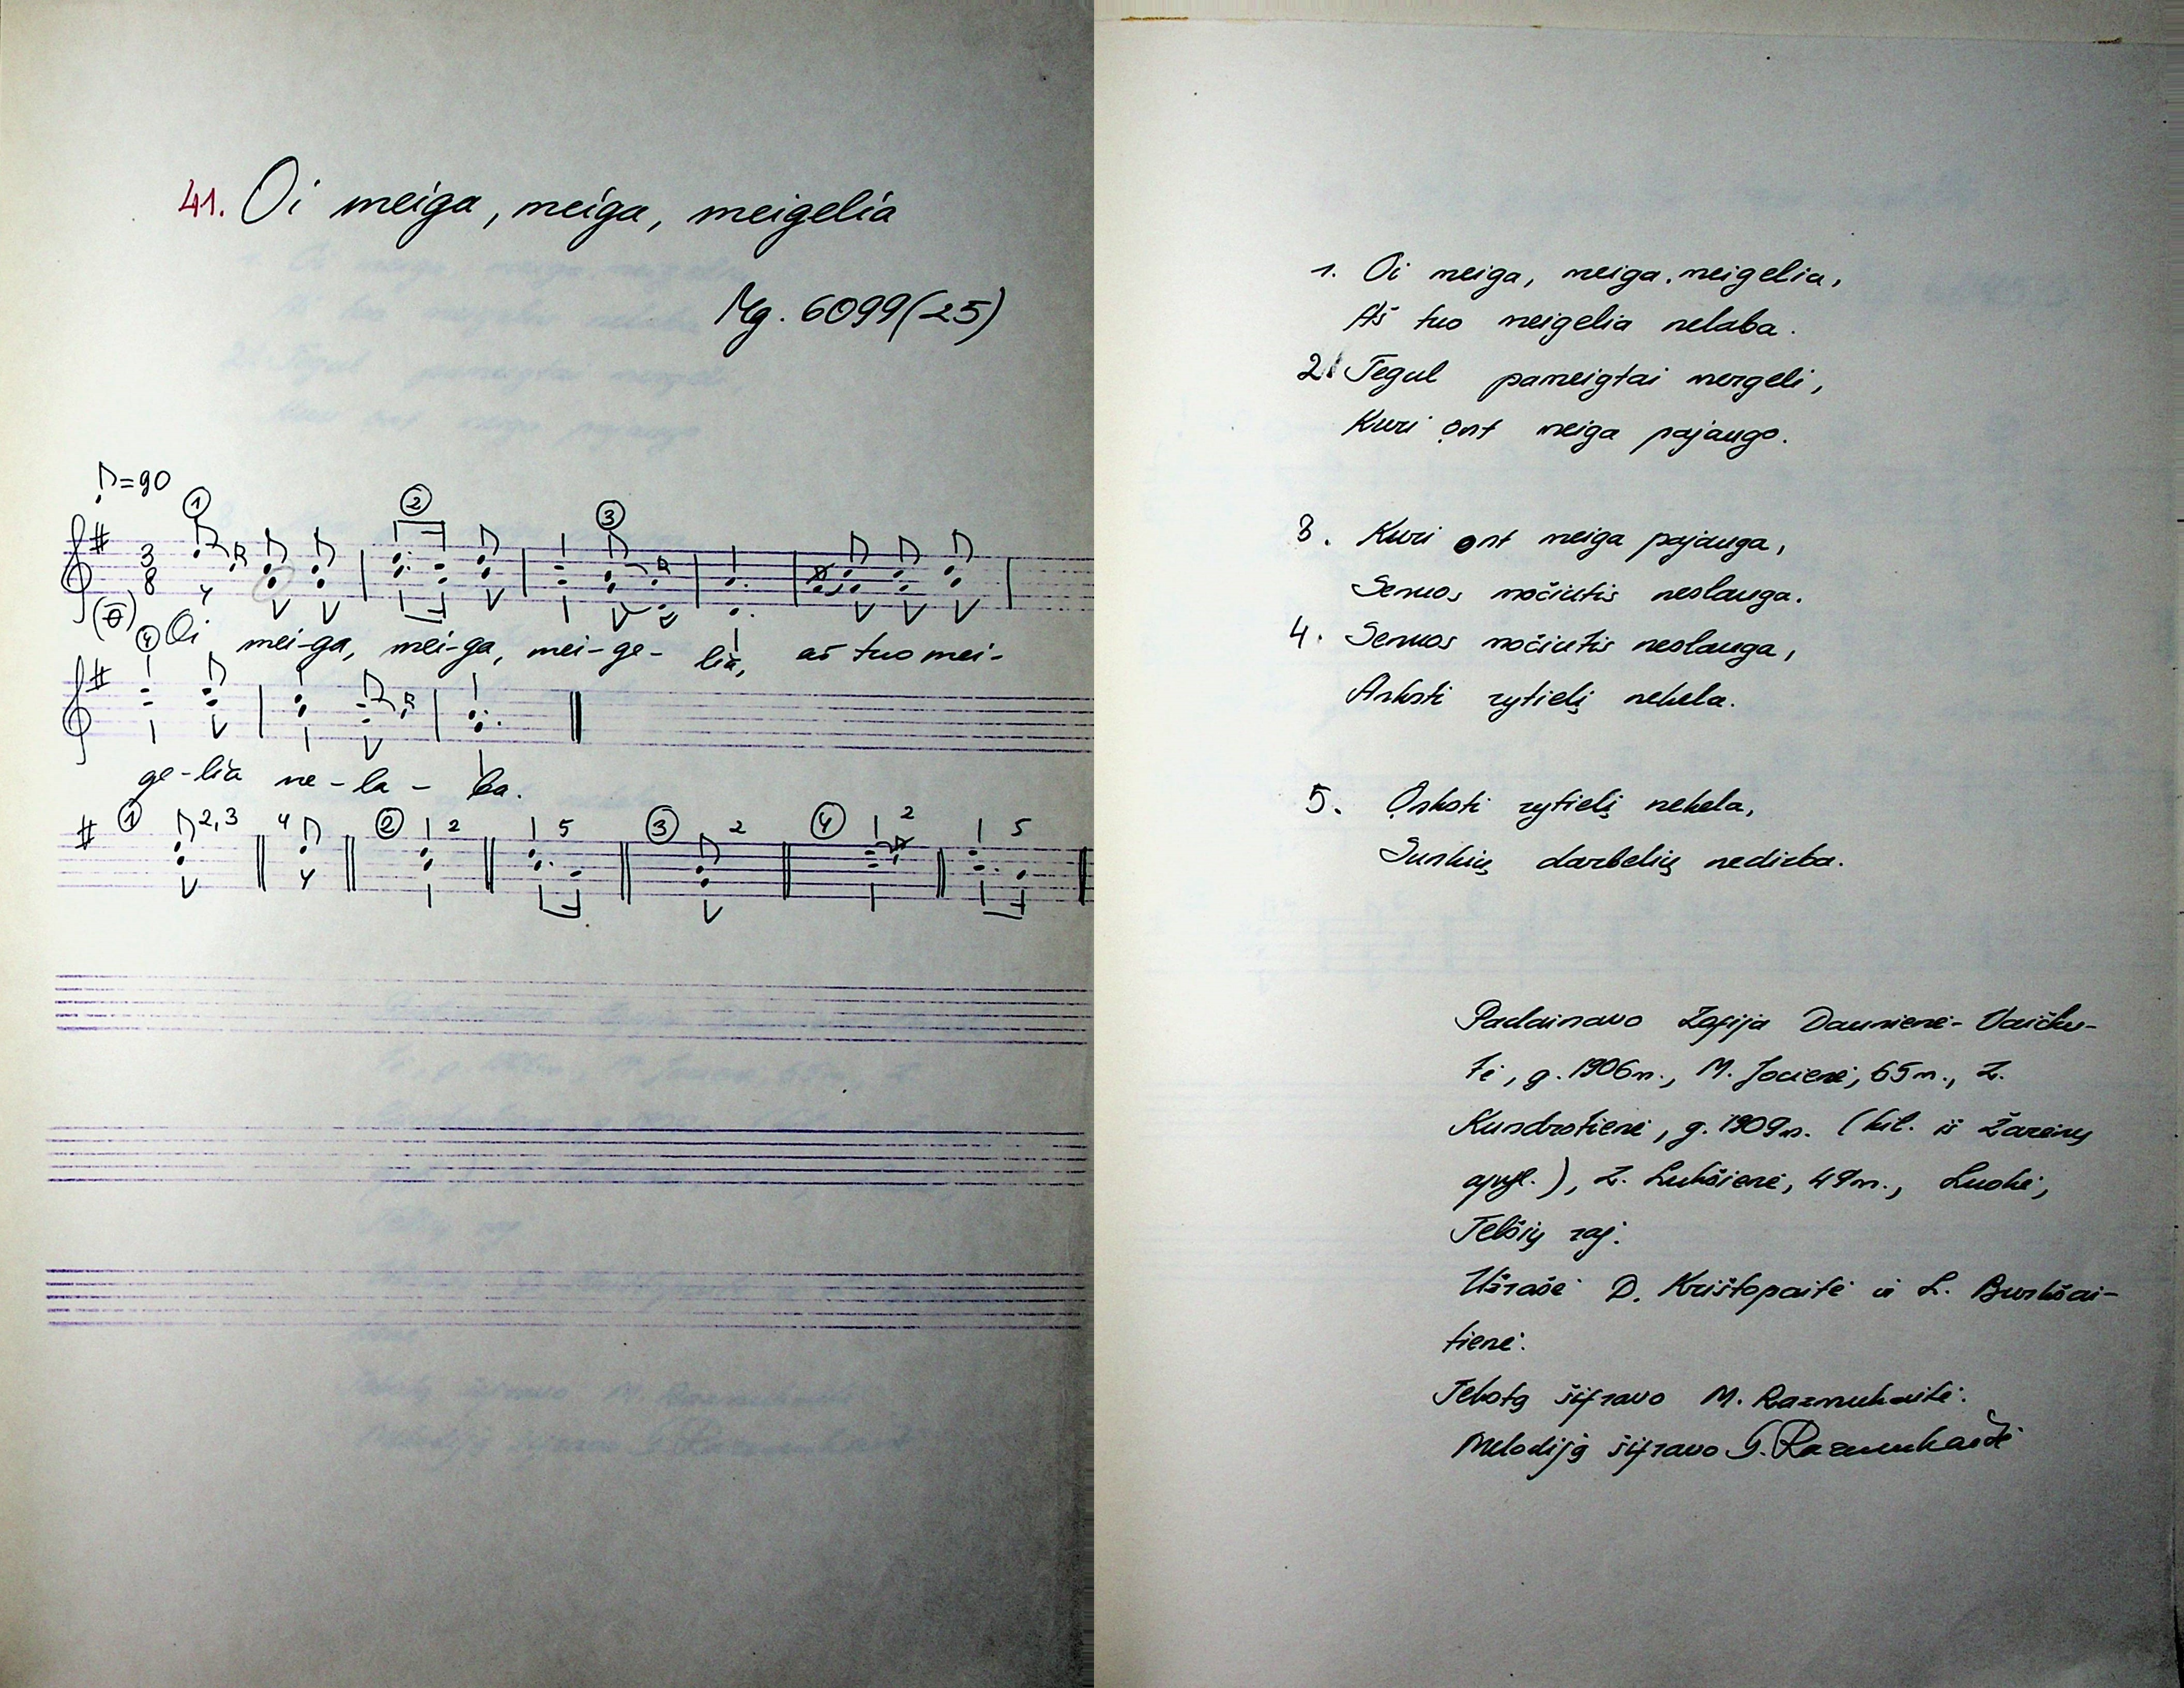 41. Oi meiga, meiga, meigelia
Mg. 6099(25)
♪=90
① ② ③
3
8
④ Oi mei-ga, mei-ga, mei-ge- lia, aš tuo mei-
ge-lia ne-la- ba.
① 2,3 4 ② 2 5 ③ 2 ④ 2 5
1. Oi meiga, meiga, meigelia,
Aš tuo meigelia nelaba.
2. Tegul pameigtai mergeli,
Kuri ont meiga pajaugo.
3. Kuri ont meiga pajauga,
Senuos močiutis neslauga.
4. Senuos močiutis neslauga,
Anksti rytielį nekela.
5. Onksti rytielį nekela,
Sunkių darbelių nedirba.
Padainavo Zofija Daunienė-Vaičku-
tė, g. 1906 m., M. Jocienė, 65 m., Z.
Kundrotienė, g. 1909 m. (kil. iš Žarėnų
apyl.), Z. Lukšienė, 49 m., Luokė,
Telšių raj.
Užrašė D. Krištopaitė ir L. Burkšai-
tienė.
Tekstą šifravo M. Razmukaitė.
Melodiją šifravo G. Razmukaitė